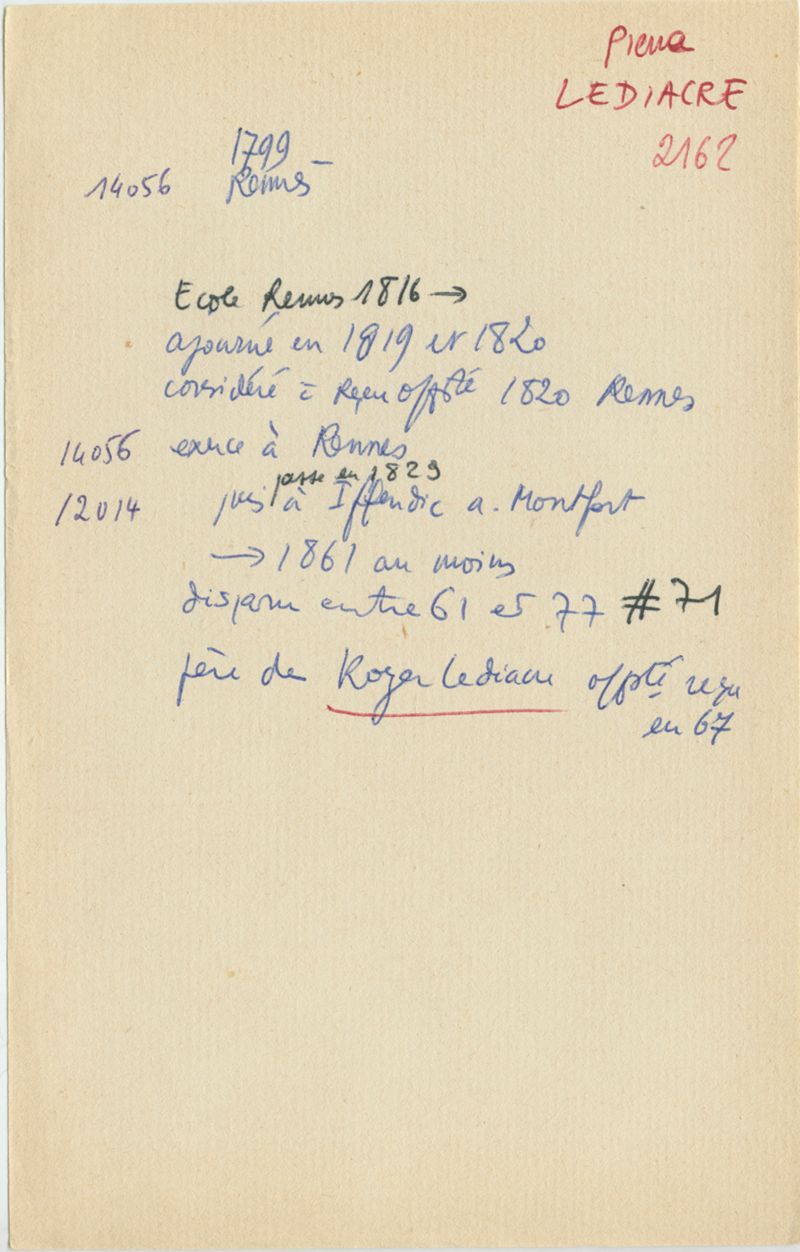 Pierre
LEDIACRE
2162
1799
14056 Rennes
Ecole Rennes 1816 →
ajourné en 1819 et 1820
considéré = reçu offsté 1820 Rennes
14056 exerce à Rennes
passe en 1829
12014 puis à Iffendic a. Montfort
→ 1861 au moins
disparu entre 61 et 77 # 71
père de Roger Lediacre offsté reçu
en 67